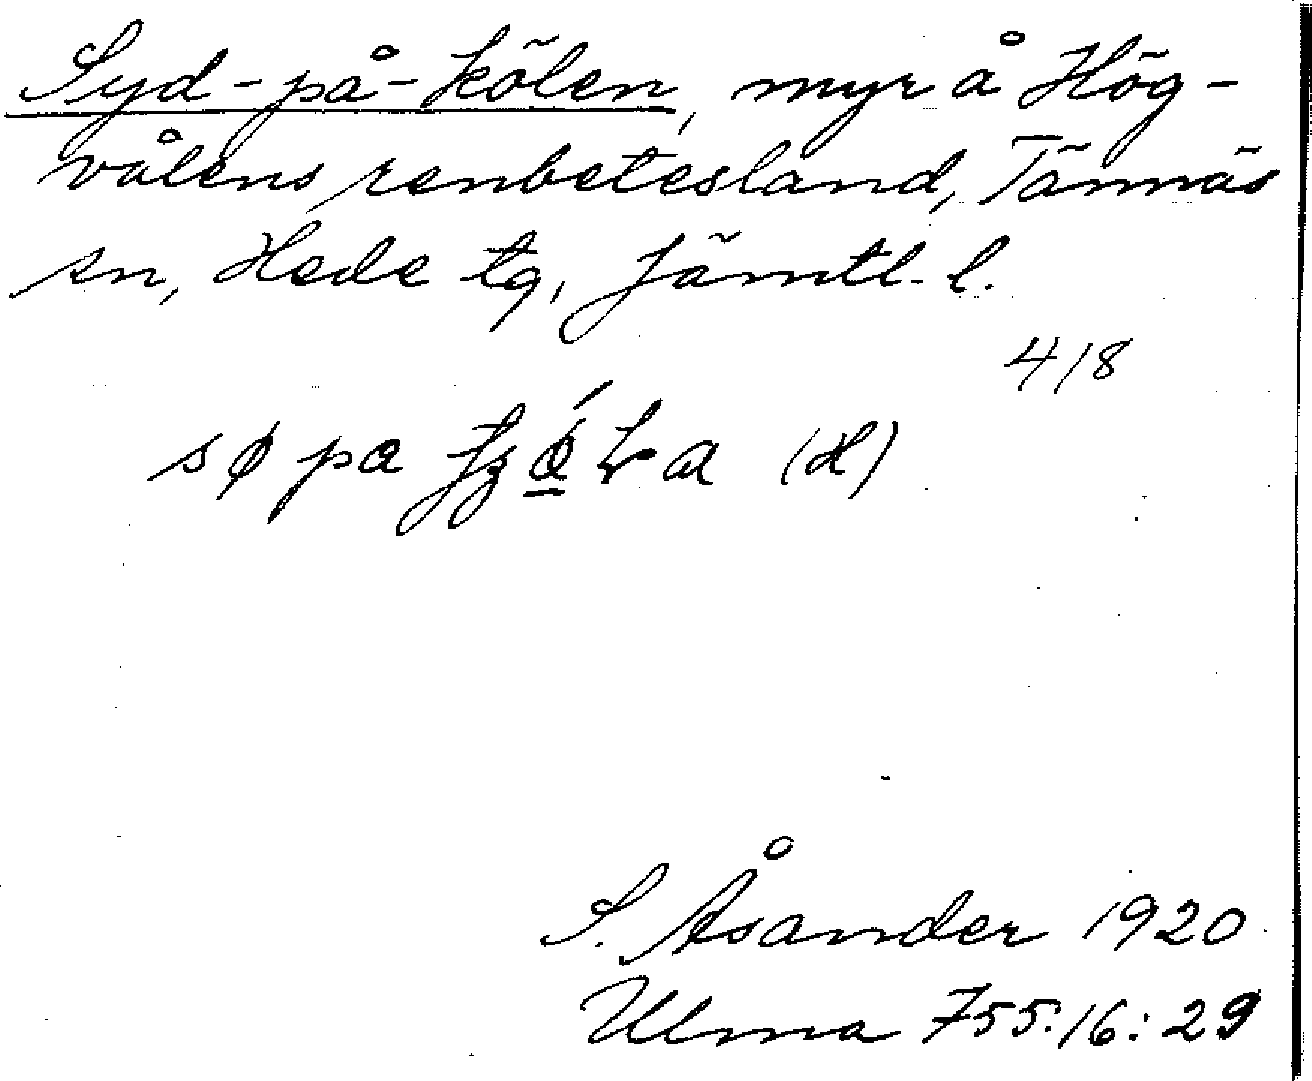 Syd-på-kölen, myr å Hög-
vålens renbetesland, Tännäs
sn, Hede tg, Jämtl. l.
418
sø pa (H)
S. Åsander 1920
Ulma 755:16:29